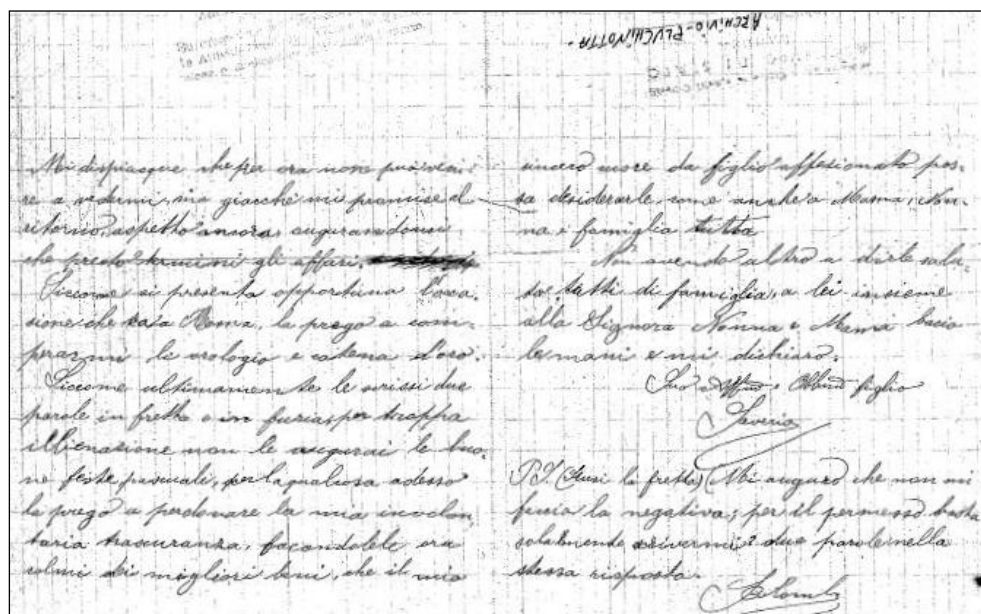 ARCHIVIO-PLUCHINOTTA-
Mi dispiacque che per ora non puoi veni-
re a vedermi, ma giacchè mi promise al
ritorno, aspetto ancora, augurandomi
che presto termini gli affari.
Siccome si presenta opportuna l'occa-
sione che va a Roma, la prego a com-
perarmi le orologio e catena d'oro.
Siccome ultimamente le scrissi due
parole in fretta e in furia, per troppa
non le augurai le buo-
ne feste pasquali, per la qualcosa adesso
la prego a perdonare la mia involon-
taria trascuranza, facendolele ora
colmi dei migliori beni, che il mio
sincero cuore da figlio affesionato pos-
sa desiderarle, come anche a Mama, Non-
na e famiglia tutta
Non avendo altro a dirle salu-
to tutti di famiglia, a lei insieme
alla Signora Nonna e Mamà bacio
le mani e mi dichiaro.
Suo Affmo e Obbmo figlio
Saverio
P.S. (Scusi la fretta) (Mi auguro che non mi
faccia la negativa; per il permesso basta
solalmente scrivermi due parole nella
stessa risposta.